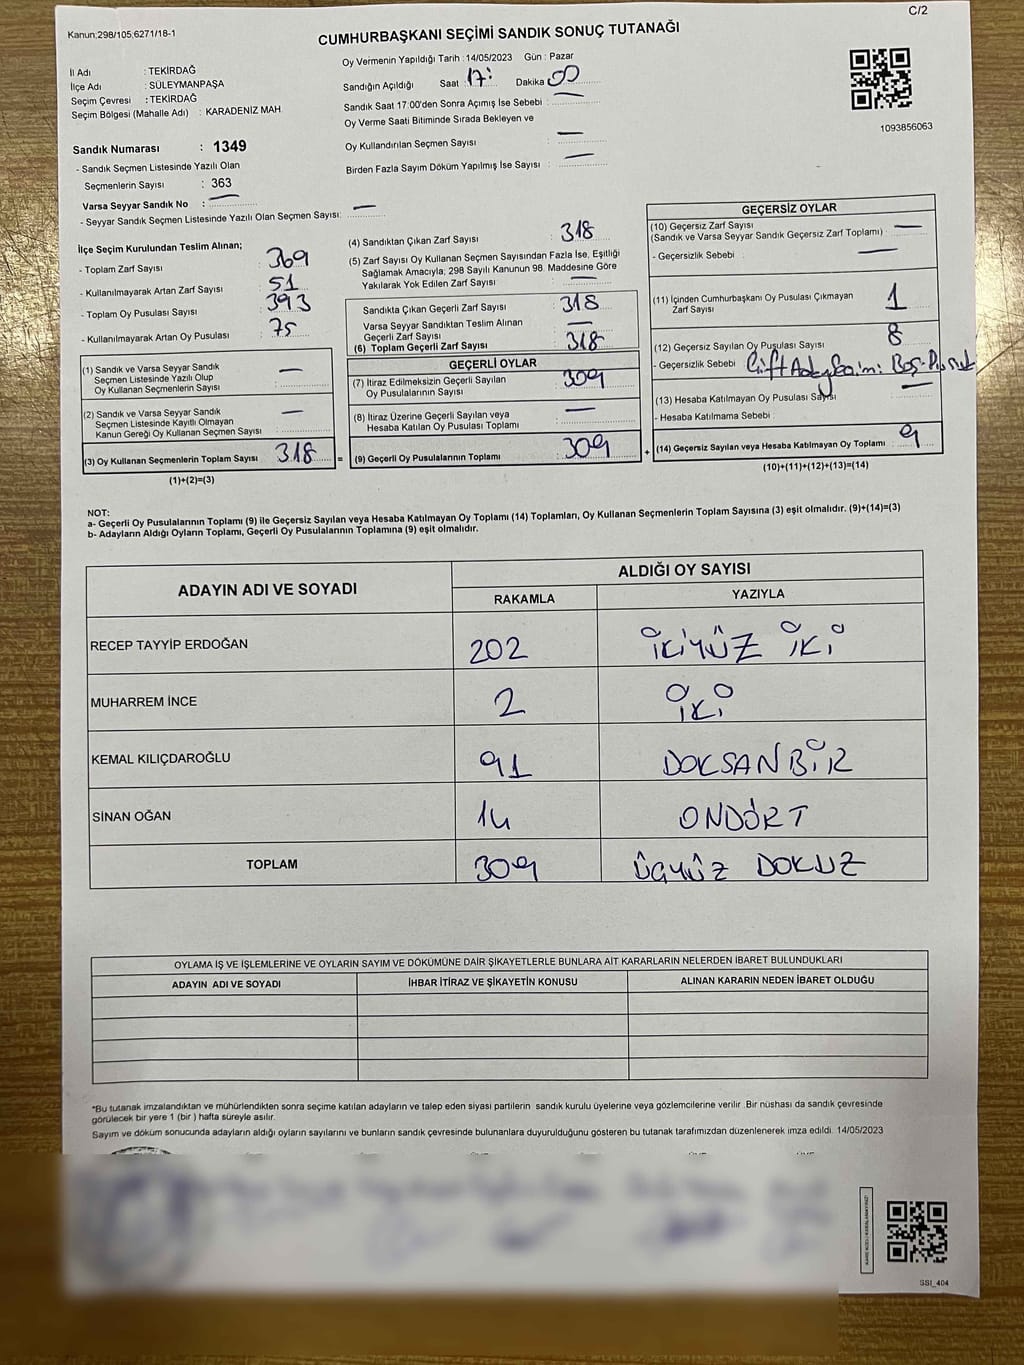 C/2
Kanun;298/105;6271/18-1
CUMHURBAŞKANI SEÇİMİ SANDIK SONUÇ TUTANAĞI
İl Adı : TEKİRDAĞ
İlçe Adı : SÜLEYMANPAŞA
Seçim Çevresi : TEKİRDAĞ
Seçim Bölgesi (Mahalle Adı) : KARADENİZ MAH.
Sandık Numarası : 1349
- Sandık Seçmen Listesinde Yazılı Olan
Seçmenlerin Sayısı : 363
Varsa Seyyar Sandık No : —
- Seyyar Sandık Seçmen Listesinde Yazılı Olan Seçmen Sayısı: —
Oy Vermenin Yapıldığı Tarih : 14/05/2023 Gün : Pazar
Sandığın Açıldığı Saat 17: Dakika 00
Sandık Saat 17:00'den Sonra Açımış İse Sebebi : —
Oy Verme Saati Bitiminde Sırada Bekleyen ve
Oy Kullandırılan Seçmen Sayısı : —
Birden Fazla Sayım Döküm Yapılmış İse Sayısı : —
1093856063
İlçe Seçim Kurulundan Teslim Alınan;
- Toplam Zarf Sayısı : 369
- Kullanılmayarak Artan Zarf Sayısı : 51
- Toplam Oy Pusulası Sayısı : 393
- Kullanılmayarak Artan Oy Pusulası : 75
(1) Sandık ve Varsa Seyyar Sandık
Seçmen Listesinde Yazılı Olup
Oy Kullanan Seçmenlerin Sayısı —
(2) Sandık ve Varsa Seyyar Sandık
Seçmen Listesinde Kayıtlı Olmayan
Kanun Gereği Oy Kullanan Seçmen Sayısı —
(3) Oy Kullanan Seçmenlerin Toplam Sayısı 318
(1)+(2)=(3)
=
(4) Sandıktan Çıkan Zarf Sayısı : 318
(5) Zarf Sayısı Oy Kullanan Seçmen Sayısından Fazla İse, Eşitliği
Sağlamak Amacıyla; 298 Sayılı Kanunun 98. Maddesine Göre
Yakılarak Yok Edilen Zarf Sayısı : —
Sandıkta Çıkan Geçerli Zarf Sayısı : 318
Varsa Seyyar Sandıktan Teslim Alınan
Geçerli Zarf Sayısı : —
(6) Toplam Geçerli Zarf Sayısı : 318
GEÇERLİ OYLAR
(7) İtiraz Edilmeksizin Geçerli Sayılan
Oy Pusulasının Sayısı : 309
(8) İtiraz Üzerine Geçerli Sayılan veya
Hesaba Katılan Oy Pusulası Toplamı : —
(9) Geçerli Oy Pusulalarının Toplamı : 309
+
GEÇERSİZ OYLAR
(10) Geçersiz Zarf Sayısı
(Sandık ve Varsa Seyyar Sandık Geçersiz Zarf Toplamı) : —
- Geçersizlik Sebebi : —
(11) İçinden Cumhurbaşkanı Oy Pusulası Çıkmayan
Zarf Sayısı : 1
(12) Geçersiz Sayılan Oy Pusulası Sayısı : 8
- Geçersizlik Sebebi :
(13) Hesaba Katılmayan Oy Pusulası Sayısı —
- Hesaba Katılmama Sebebi :
(14) Geçersiz Sayılan veya Hesaba Katılmayan Oy Toplamı : 9
(10)+(11)+(12)+(13)=(14)
NOT:
a- Geçerli Oy Pusulalarının Toplamı (9) ile Geçersiz Sayılan veya Hesaba Katılmayan Oy Toplamı (14) Toplamları, Oy Kullanan Seçmenlerin Toplam Sayısına (3) eşit olmalıdır. (9)+(14)=(3)
b- Adayların Aldığı Oyların Toplamı, Geçerli Oy Pusulalarının Toplamına (9) eşit olmalıdır.
ADAYIN ADI VE SOYADI
ALDIĞI OY SAYISI
RAKAMLA YAZIYLA
RECEP TAYYİP ERDOĞAN 202 İKİYÜZ İKİ
MUHARREM İNCE 2 İKİ
KEMAL KILIÇDAROĞLU 91 DOKSANBİR
SİNAN OĞAN 14 ONDÖRT
TOPLAM 309 ÜÇYÜZ DOKUZ
OYLAMA İŞ VE İŞLEMLERİNE VE OYLARIN SAYIM VE DÖKÜMÜNE DAİR ŞİKAYETLERLE BUNLARA AİT KARARLARIN NELERDEN İBARET BULUNDUKLARI
ADAYIN ADI VE SOYADI İHBAR İTİRAZ VE ŞİKAYETİN KONUSU ALINAN KARARIN NEDEN İBARET OLDUĞU
*Bu tutanak imzalandıktan ve mühürlendikten sonra seçime katılan adayların ve talep eden siyasi partilerin sandık kurulu üyelerine veya gözlemcilerine verilir. Bir nüshası da sandık çevresinde
görülecek bir yere 1 (bir) hafta süreyle asılır.
Sayım ve döküm sonucunda adayların aldığı oyların sayılarını ve bunların sandık çevresinde bulunanlara duyurulduğunu gösteren bu tutanak tarafımızdan düzenlenerek imza edildi. 14/05/2023
SSI_404